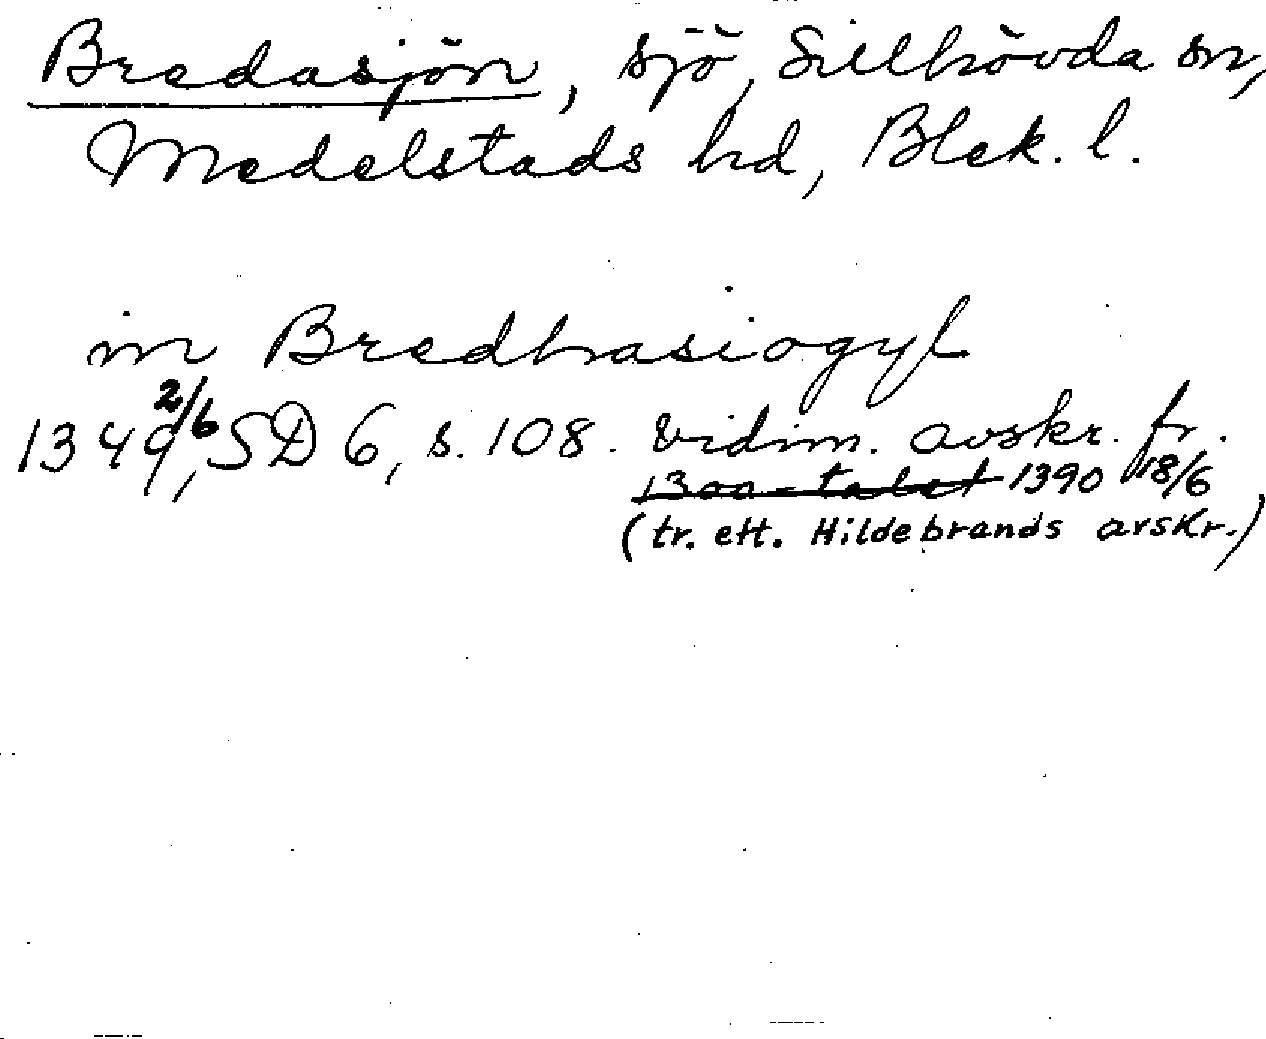 Bredasjön, sjö, Sillhövda sn,
Medelstads hd, Blek. l.
in Bredhasiogyl
1349 2/6, SD 6, s. 108. vidim. avskr. fr.
1300-talet 1390 18/6
(tr. eft. Hildebrands avskr.)